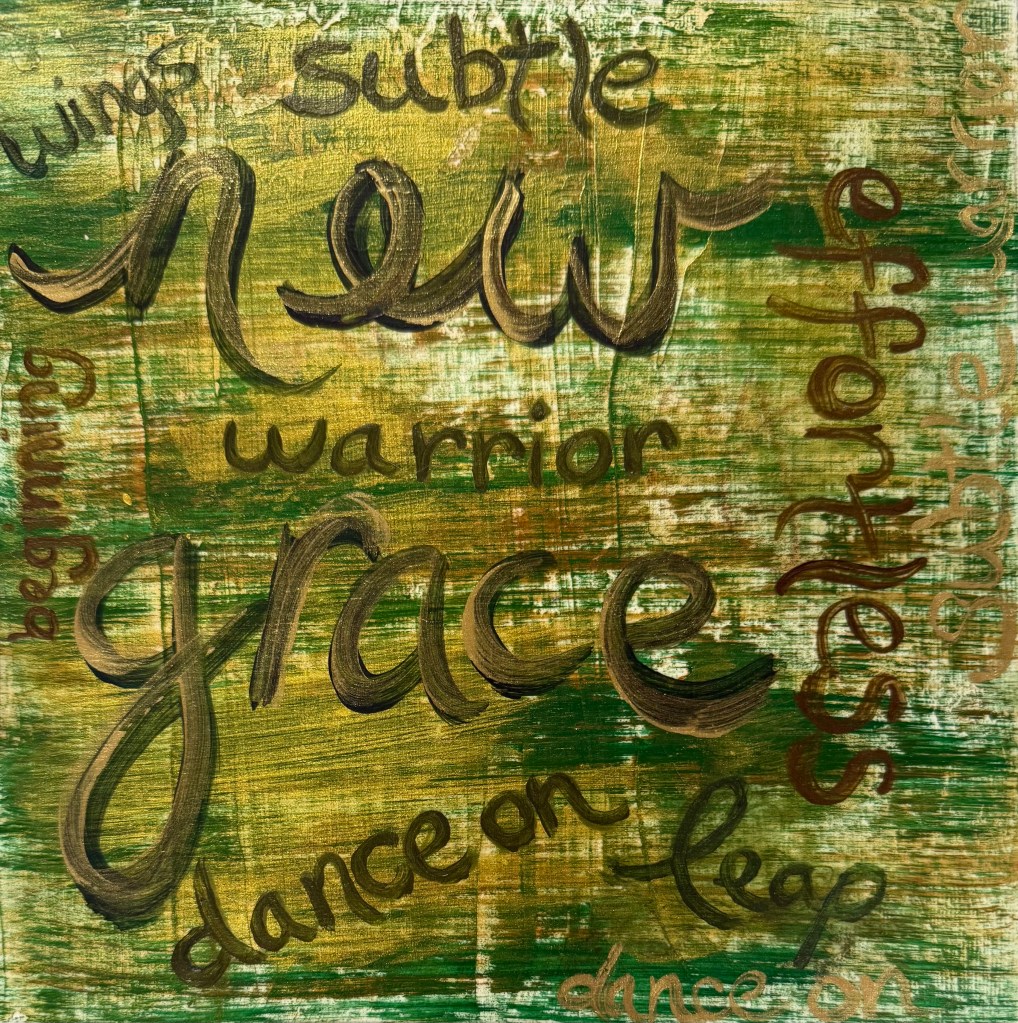 wings
subtle
new
effortless
beginning
warrior
grace
dance on
leap
dance on